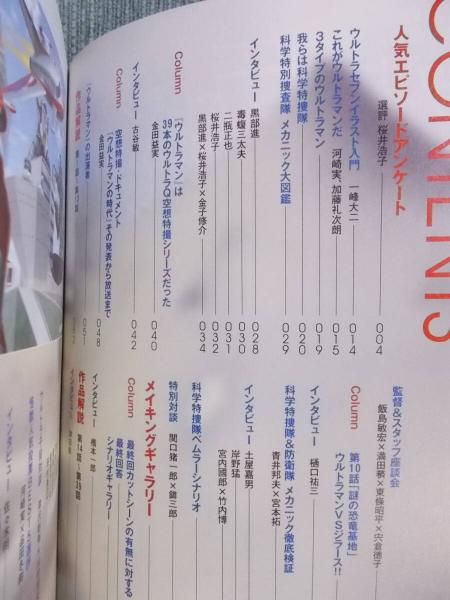 CONTENTS
人気エピソードアンケート
選評 桜井浩子 004
ウルトラセブンイラスト入門 一峰大二 014
これがウルトラマンだ 河崎実、加藤礼次朗 015
3タイプのウルトラマン 019
我らは科学特捜隊 020
科学特別捜査隊 メカニック大図鑑 029
インタビュー 黒部進 028
毒蝮三太夫 030
二瓶正也 031
桜井浩子 032
黒部進×桜井浩子×金子修介 034
Column 『ウルトラマン』は
39本のウルトラQ空想特撮シリーズだった
金田益実 040
インタビュー 古谷敏 042
Column 空想特撮・ドキュメント
「ウルトラマンの時代」その発表から放送まで
金田益実 048
『ウルトラマン』への出演者 051
作品解説
監督&スタッフ座談会
飯島敏宏×満田かずほ×東條昭平×宍倉徳子
Column 第10話「謎の恐竜基地」
ウルトラマンVSジラース!!
インタビュー 樋口祐三
科学特捜隊&防衛隊 メカニック徹底検証
青井邦夫×宮本拓
インタビュー 土屋嘉男
岸野猛
宮内國郎×竹内博
科学特捜隊ベムラーシナリオ
特別対談 関口猪一郎×鏑三郎
メイキングギャラリー
Column 最終回カットシーンの有無に対する
最終回答
シナリオギャラリー
インタビュー 橋本一郎
作品解説 第14話〜第39話
インタビュー
インタビュー 佐々木剛